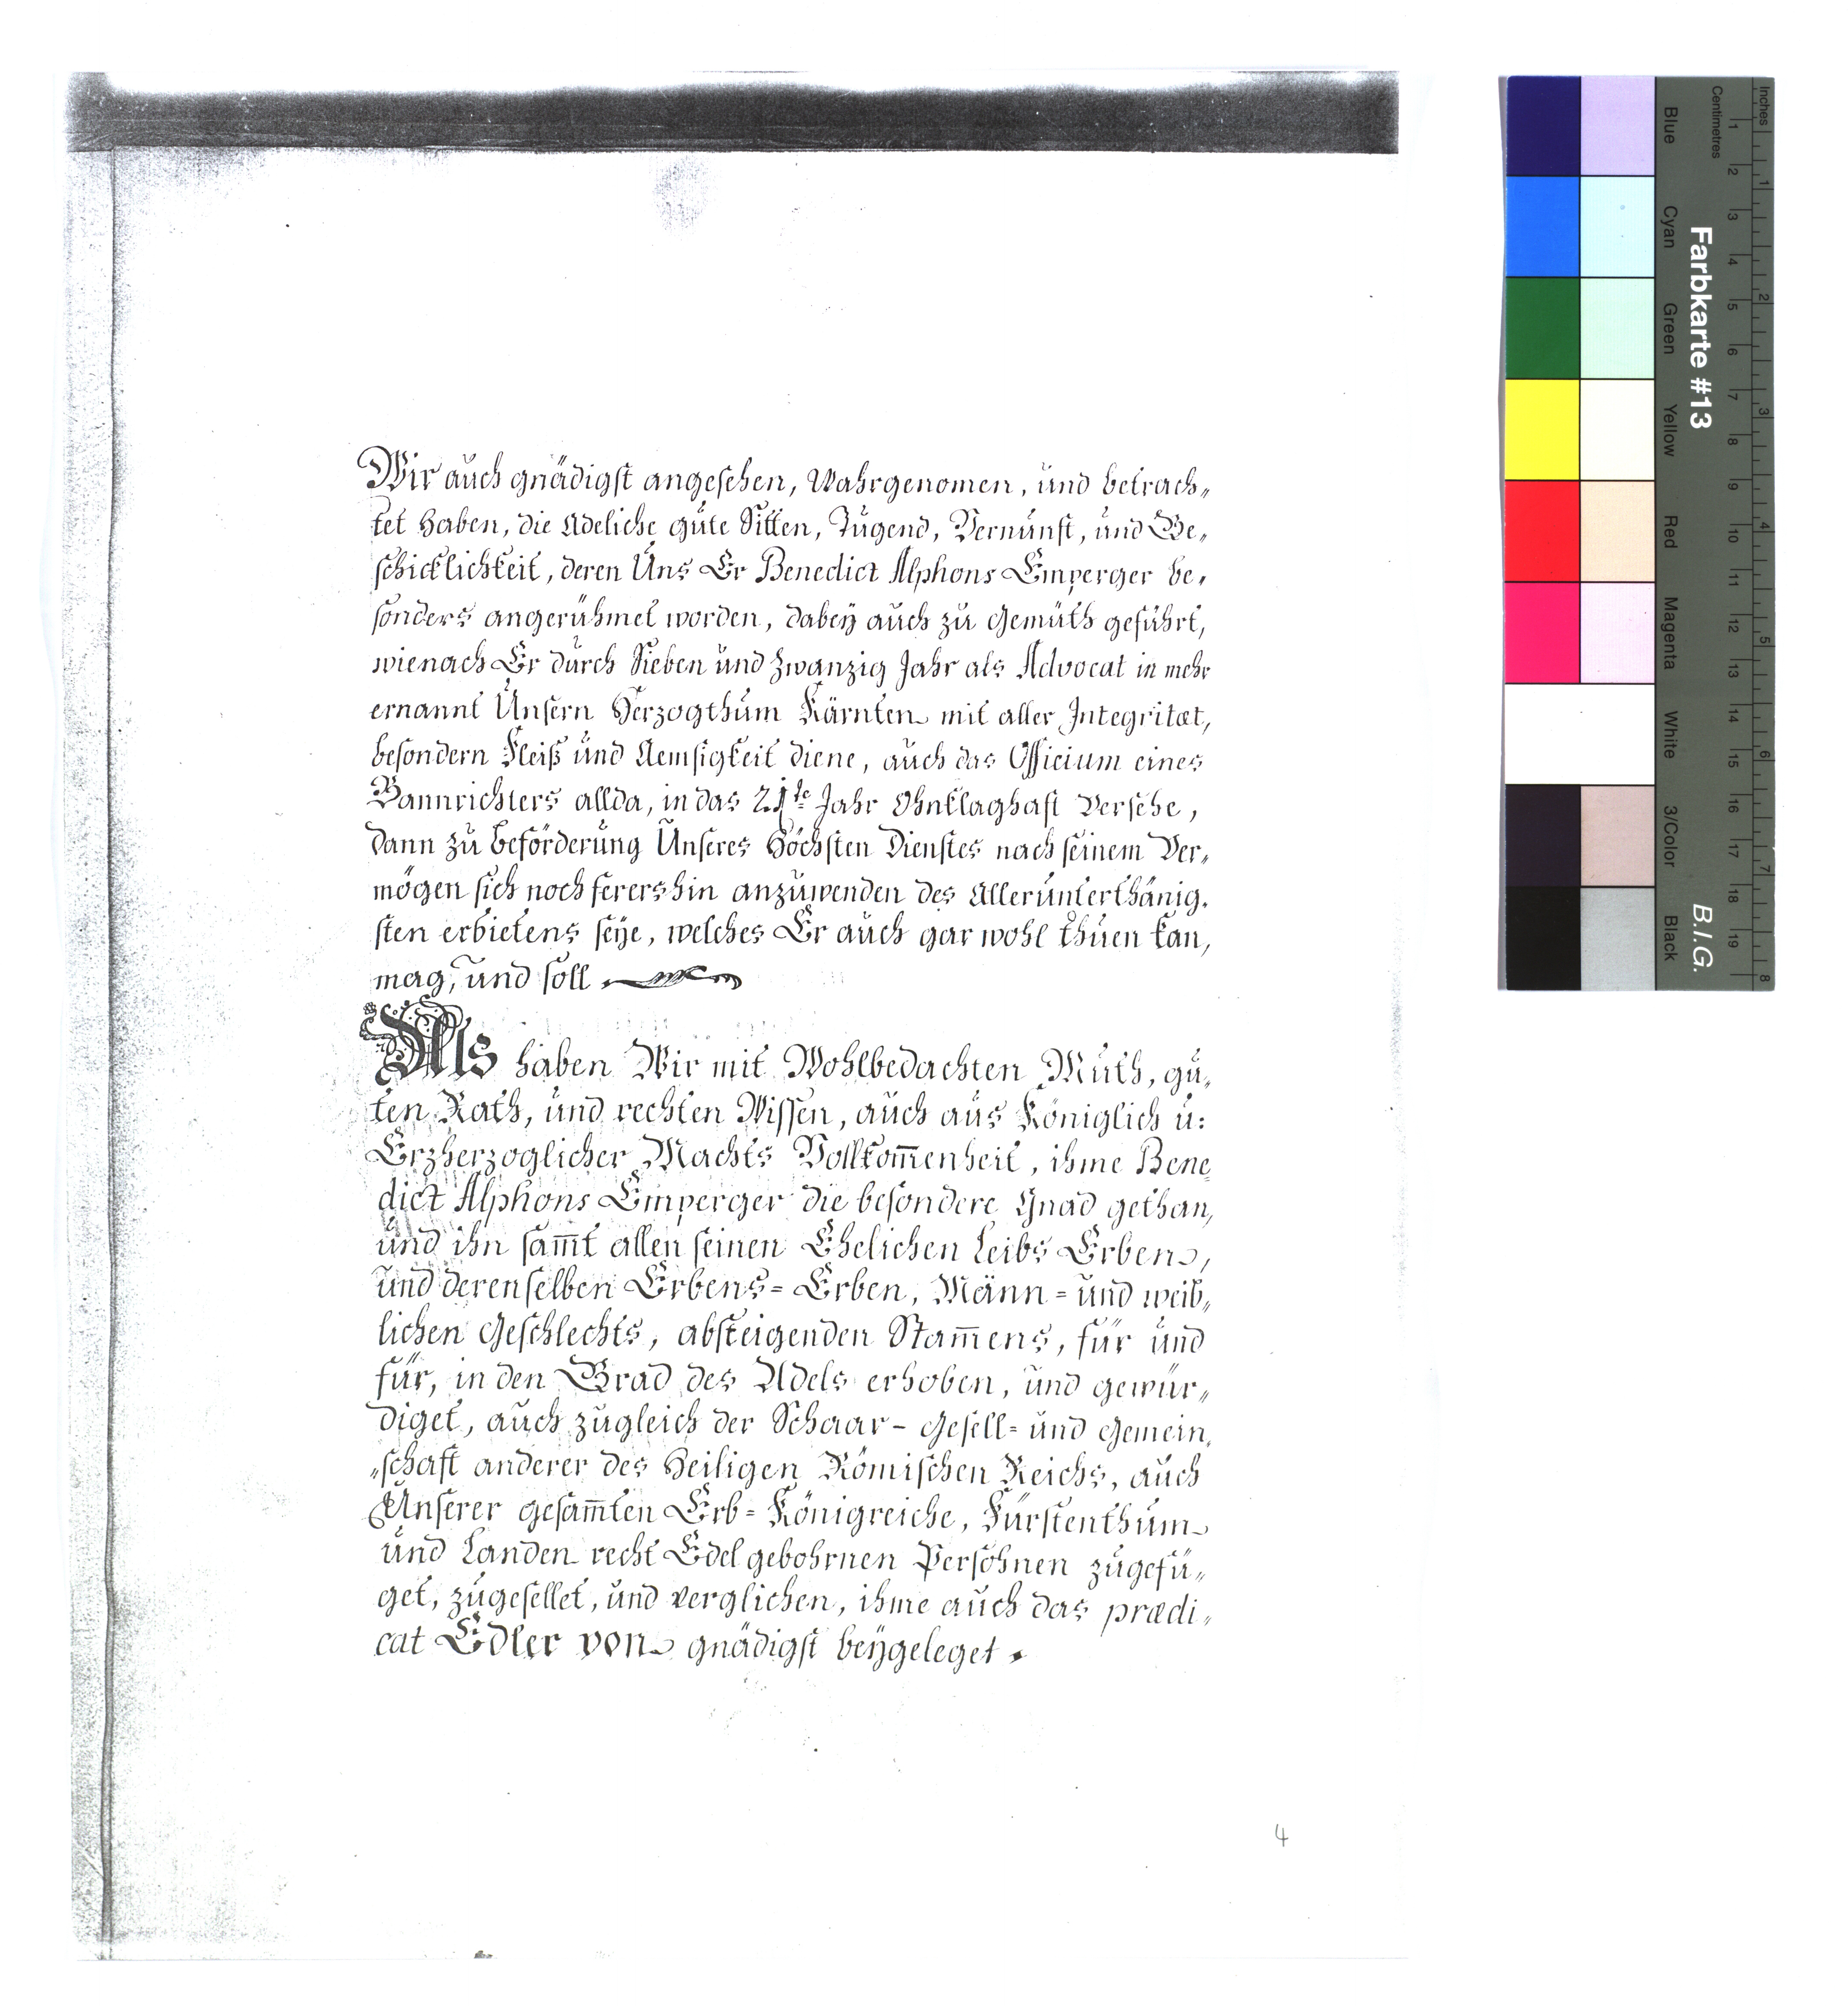 Wir auch gnädigst angesehen, Wahrgenomen, und betrach„
tet haben, die Adeliche gute Sitten, Tugend, Vernunft, und Ge„
schicklichkeit, deren Uns Er Benedict Alphons Emperger be„
sonders angerühmet worden, dabeÿ auch zu Gemüth geführt,
wienach Er durch Sieben und Zwanzig Jahr als Advocat in mehr
ernannt Unsern Herzogthum Kärnten mit aller Integritæt,
besondern Fleiß und Aemsigkeit diene, auch das Officium eines
Bannrichters allda, in das 21te Jahr Ohnklaghaft Versehe,
dann zu beförderung Unseres Höchsten Dienstes nach seinem Ver„
mögen sich noch ferershin anzuwenden des Allerunterthänig„
sten erbietens seÿe, welches Er auch gar wohl thuen kan,
mag, und soll
Als haben Wir mit Wohlbedachten Muth, gu„
ten Rath, und rechten Wissen, auch aus Königlich u:
Erzherzoglicher Machts Vollkom̅enheit, ihme Bene
dict Alphons Emperger die besondere Gnad gethan,
und ihn sam̅t allen seinen Ehelichen Leibs Erben,
und derenselben Erbens= Erben, Männ= und weib„
lichen Geschlechts, absteigenden Stam̅ens, für und
für, in den Grad des Adels erhoben, und gewür„
diget, auch zugleich der Schaar- Gesell= und Gemein„
„schaft anderer des Heiligen Römischen Reichs, auch
Unserer gesam̅ten Erb= Königreiche, Fürstenthum
und Landen recht Edel gebohrnen Persohnen zugefü„
get, zugesellet, und verglichen, ihme auch das prædi„
cat Edler von gnädigst beÿgeleget
4
Inches
Centimetres
1 2 3 4 5 6 7 8 9 10 11 12 13 14 15 16 17 18 19
1 2 3 4 5 6 7 8
Blue Cyan Green Yellow Red Magenta White 3/Color Black
Farbkarte #13
B.I.G.